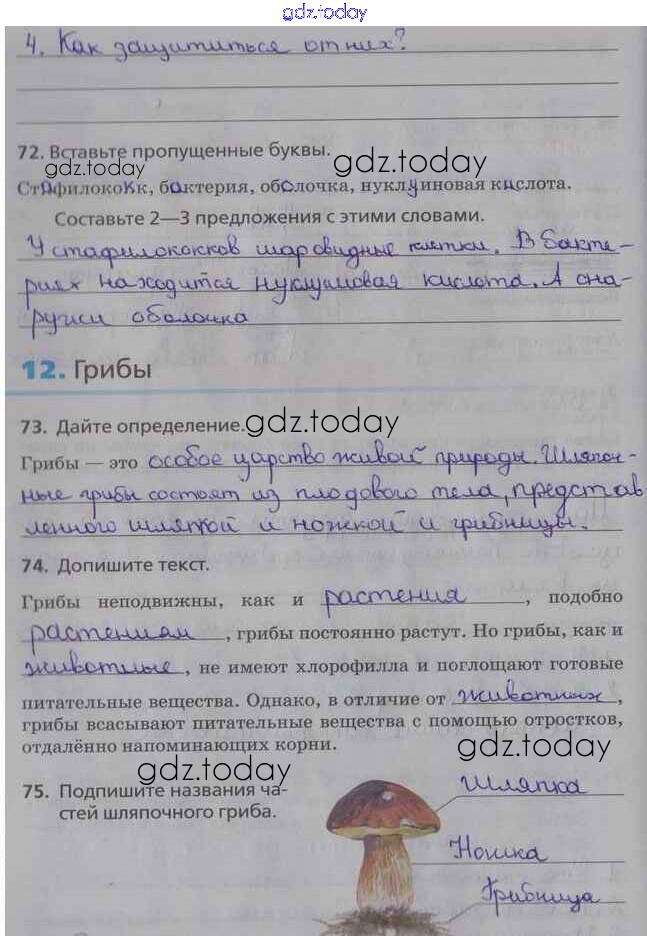 gdz.today
4. Как защититься от них?
72. Вставьте пропущенные буквы.
gdz.today
gdz.today
Стафилококк, бактерия, оболочка, нуклуиновая кислота.
Составьте 2—3 предложения с этими словами.
У стафилококков шаровидные клетки. В бакте-
риях находится нуклуиновая кислота. А сна-
ружи оболочка
12. Грибы
73. Дайте определение.
gdz.today
Грибы — это особое царство живой природы. Шляпоч-
ные грибы состоят из плодового тела, представ
ленного шляпкой и ножкой и грибницы.
74. Допишите текст.
Грибы неподвижны, как и растения, подобно
растениям, грибы постоянно растут. Но грибы, как и
животные, не имеют хлорофилла и поглощают готовые
питательные вещества. Однако, в отличие от животных,
грибы всасывают питательные вещества с помощью отростков,
отдалённо напоминающих корни.
gdz.today
gdz.today
75. Подпишите названия ча-
стей шляпочного гриба.
Шляпка
Ножка
Грибница